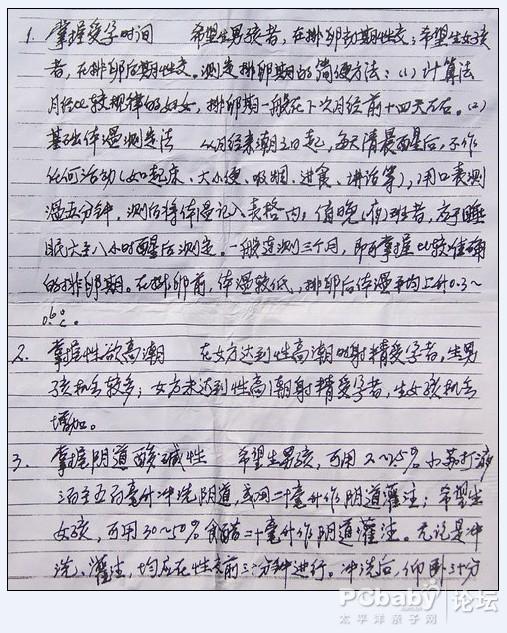 1. 掌握受孕时间 希望生男孩者,在排卵前期性交;希望生女孩
者,在排卵后期性交。测定排卵期的简便方法:(1)计算法
月经比较规律的妇女,排卵期一般在下次月经前十四天左右。(2)
基础体温测定法 从月经来潮之日起,每天清晨醒后,不作
任何活动(如起床、大小便、吸烟、进食、讲话等),用口表测
温五分钟,测后将体温记入表格内。值晚(夜)班者,应于睡
眠六至八小时醒后测定。一般连测三个月,即可掌握比较准确
的排卵期。在排卵前,体温较低、排卵后体温平均上升0.3~
0.6℃。
2. 掌握性欲高潮 在女方达到性高潮时射精受孕者,生男
孩机会较多;女方未达到性高潮射精受孕者,生女孩机会
增加。
3. 掌握阴道酸碱性 希望生男孩,可用2~2.5%小苏打液
三百至五百毫升冲洗阴道,或用二十毫升作阴道灌注;希望生
女孩,可用30~50%食醋二十毫升作阴道灌注。无论是冲
洗、灌注,均应在性交前三分钟进行。冲洗后,仰卧三十分
PCbaby 论坛
太平洋亲子网